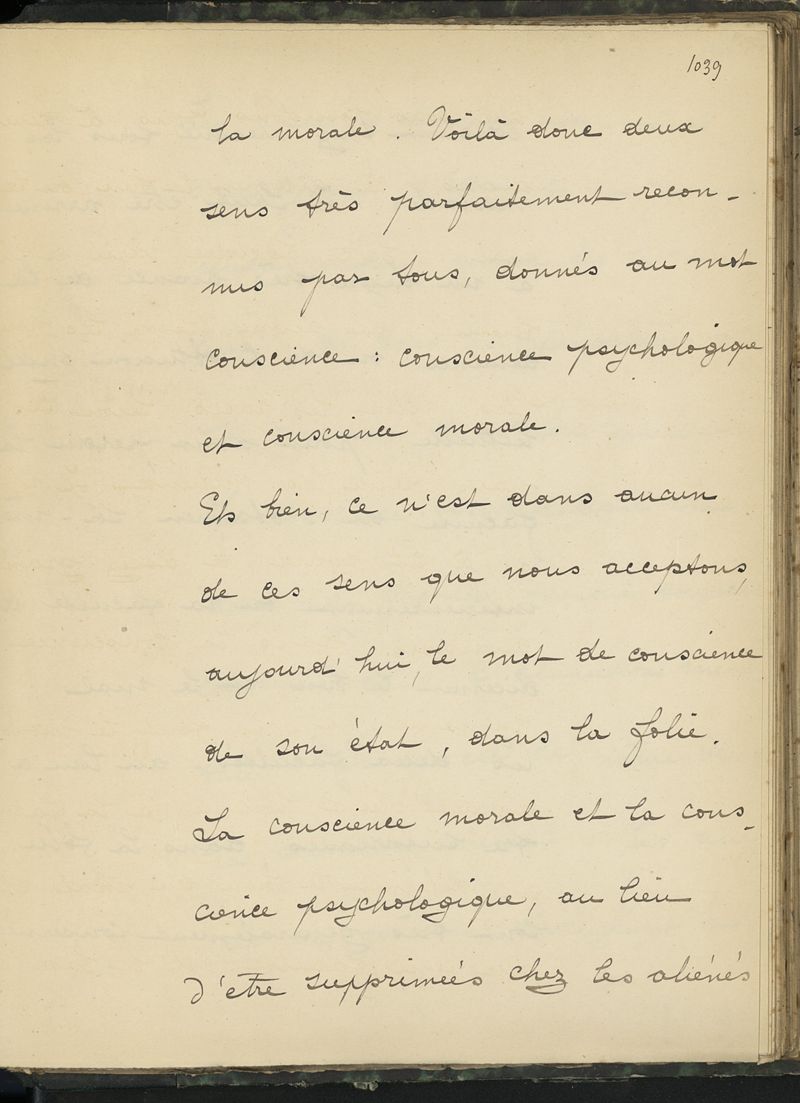 1039
la morale. Voilà donc deux
sens très parfaitement recon-
nus par tous, donnés au mot
conscience : conscience psychologique
et conscience morale.
Eh bien, ce n'est dans aucun
de ces sens que nous acceptons,
aujourd'hui, le mot de conscience
de son état, dans la folie.
La conscience morale et la cons-
cience psychologique, au lieu
d'être supprimées chez les aliénés